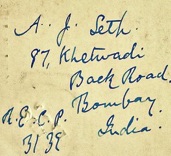 A. J. Seth.
97, Khetwadi
Back Road.
Bombay.
India.
R.E.C.P.